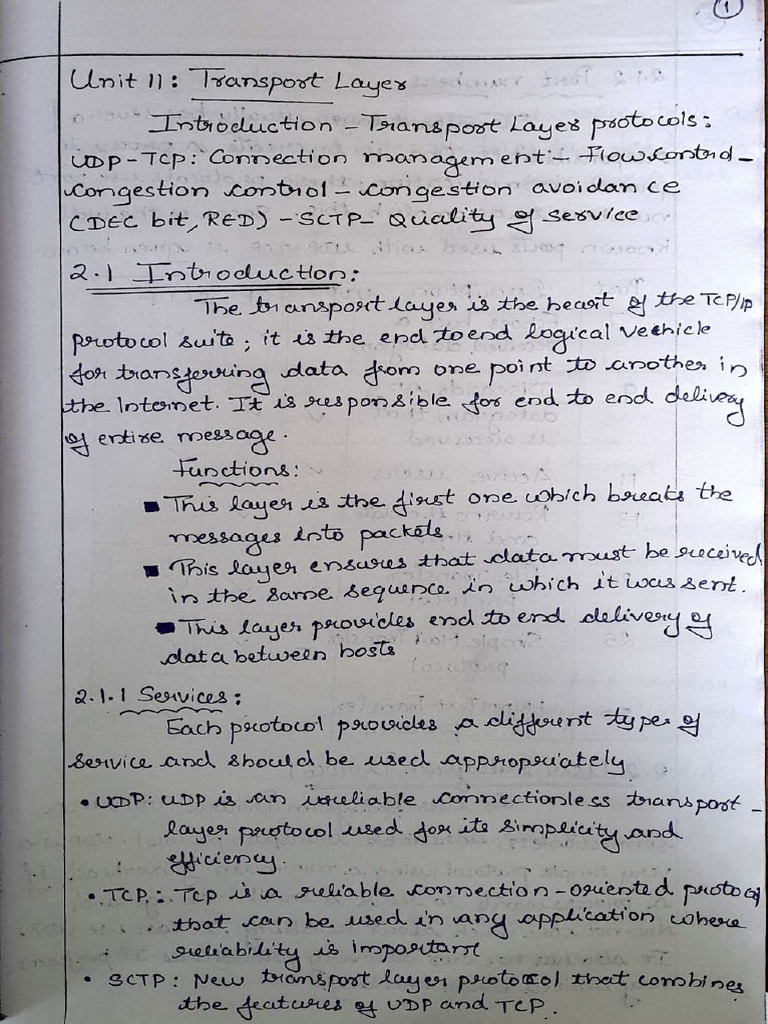 1
Unit 11: Transport Layer
Introduction - Transport Layer protocols:
UDP-TCP: Connection management - Flow control -
congestion control - congestion avoidance
(DEC bit, RED) - SCTP - Quality of service
2.1 Introduction:
The transport layer is the heart of the TCP/IP
protocol suite; it is the end to end logical vechicle
for transferring data from one point to another in
the Internet. It is responsible for end to end delivery
of entire message.
Functions:
■ This layer is the first one which breaks the
messages into packets.
■ This layer ensures that data must be received
in the same sequence in which it was sent.
■ This layer provides end to end delivery of
data between hosts
2.1.1 Services:
Each protocol provides a different type of
service and should be used appropriately
• UDP: UDP is an unreliable connectionless transport -
layer protocol used for its simplicity and
efficiency.
• TCP: TCP is a reliable connection-oriented protocol
that can be used in any application where
reliability is important
• SCTP: New transport layer protocol that combines
the features of UDP and TCP.